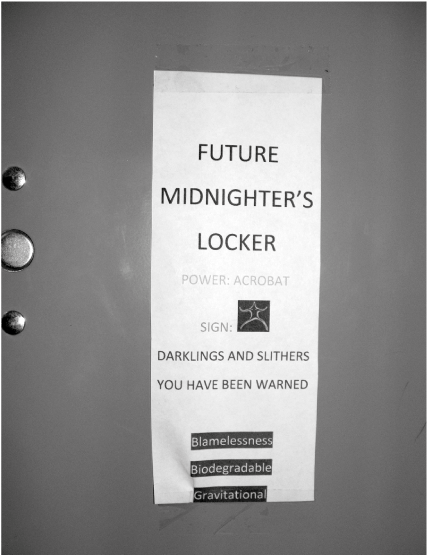 FUTURE
MIDNIGHTER'S
LOCKER
POWER: ACROBAT
SIGN:
DARKLINGS AND SLITHERS
YOU HAVE BEEN WARNED
Blamelessness
Biodegradable
Gravitational